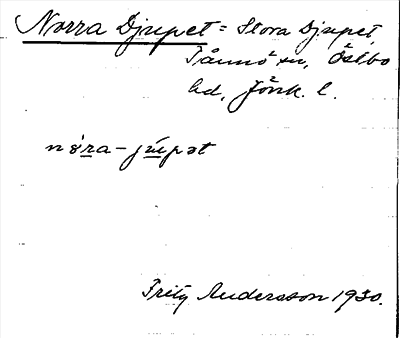 Norra Djupet = Stora Djupet,
Tånnö sn, Östbo
hd, Jönk. l.
nò̱ra - ju̱pət
Fritz Andersson 1930.